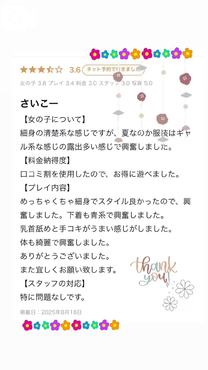 3.6 ネット予約で行きました
女の子 3.8 プレイ 3.4 料金 3.0 スタッフ 3.0 写真 5.0
さいこー
【女の子について】
細身の清楚系な感じですが、夏なのか服装はギャ
ル系な感じの露出多い感じで興奮しました。
【料金納得度】
口コミ割を使用したので、お得に遊べました。
【プレイ内容】
めっちゃくちゃ細身でスタイル良かったので、興
奮しました。下着も青系で興奮しました。
乳首舐めと手コキがうまい感じがしました。
体も綺麗で興奮しました。
ありがとうございました。
また宜しくお願い致します。
thank you!
【スタッフの対応】
特に問題なしです。
掲載日：2025年8月18日